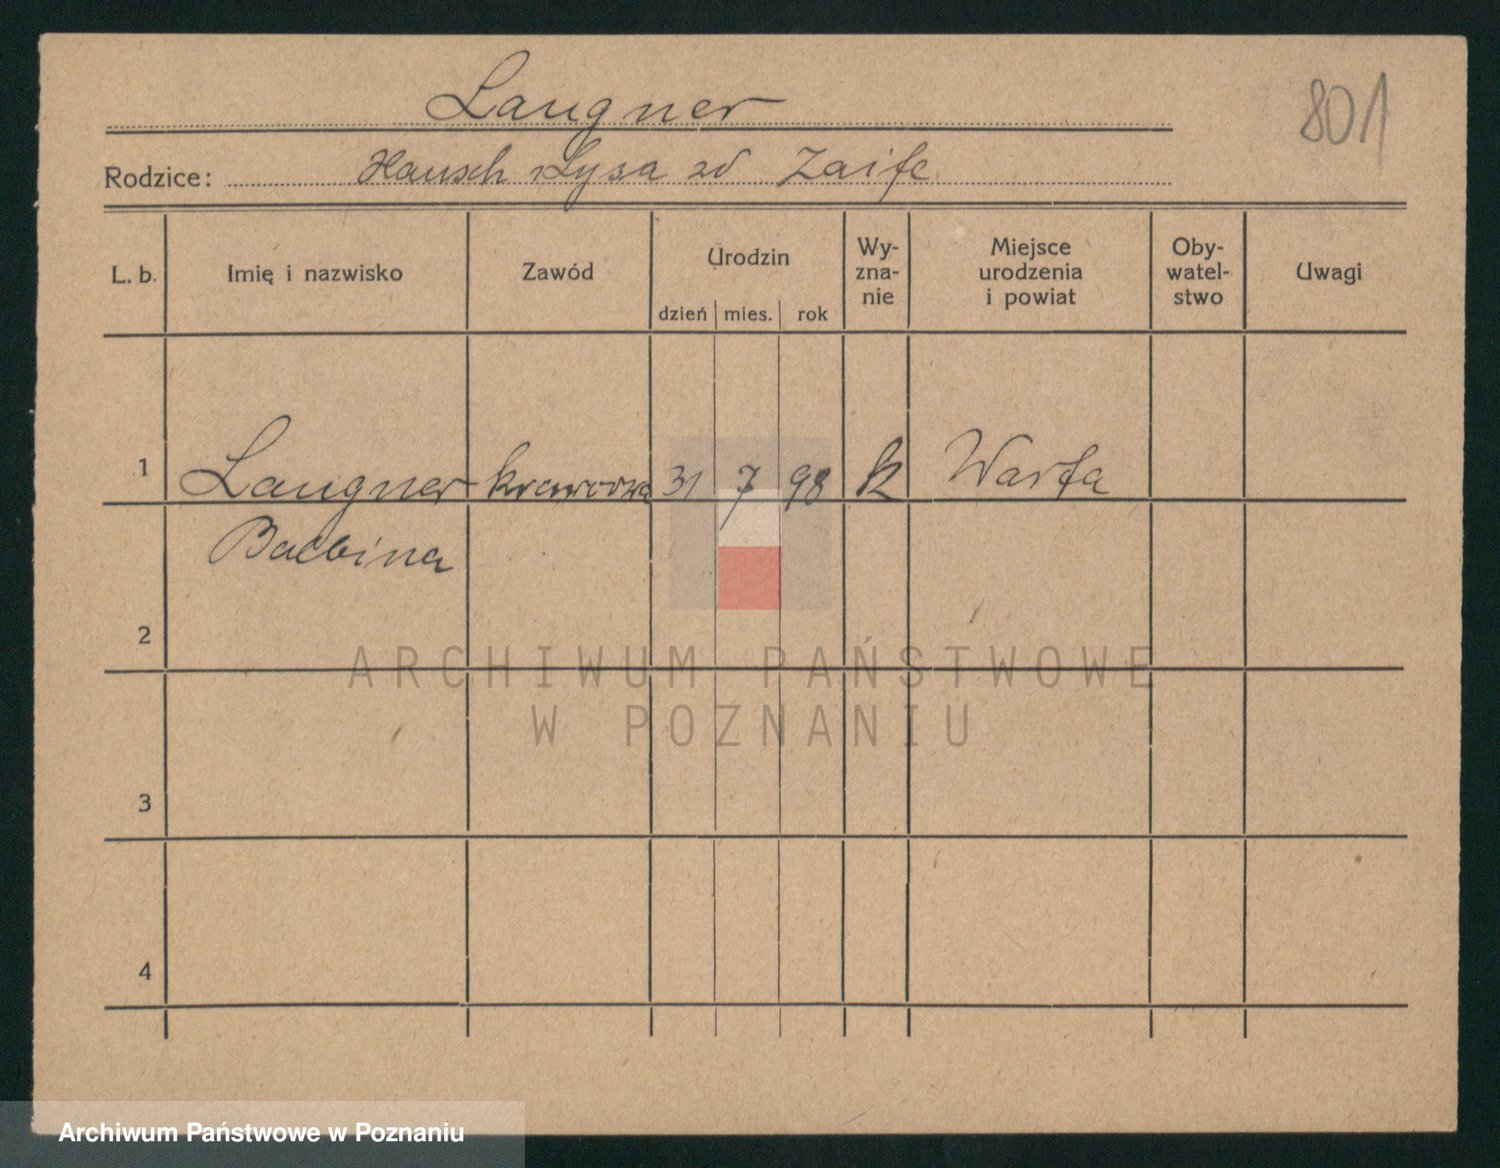 Laugner
801
Rodzice: Hausch Lysa zd Zaife
L. b. Imię i nazwisko Zawód Urodzin dzień mies. rok Wy-zna-nie Miejsce urodzenia i powiat Oby-watel-stwo Uwagi
1 Laugner krawcowa 31 7 98 k Warta
Balbina
2
ARCHIWUM PAŃSTWOWE
W POZNANIU
3
4
Archiwum Państwowe w Poznaniu